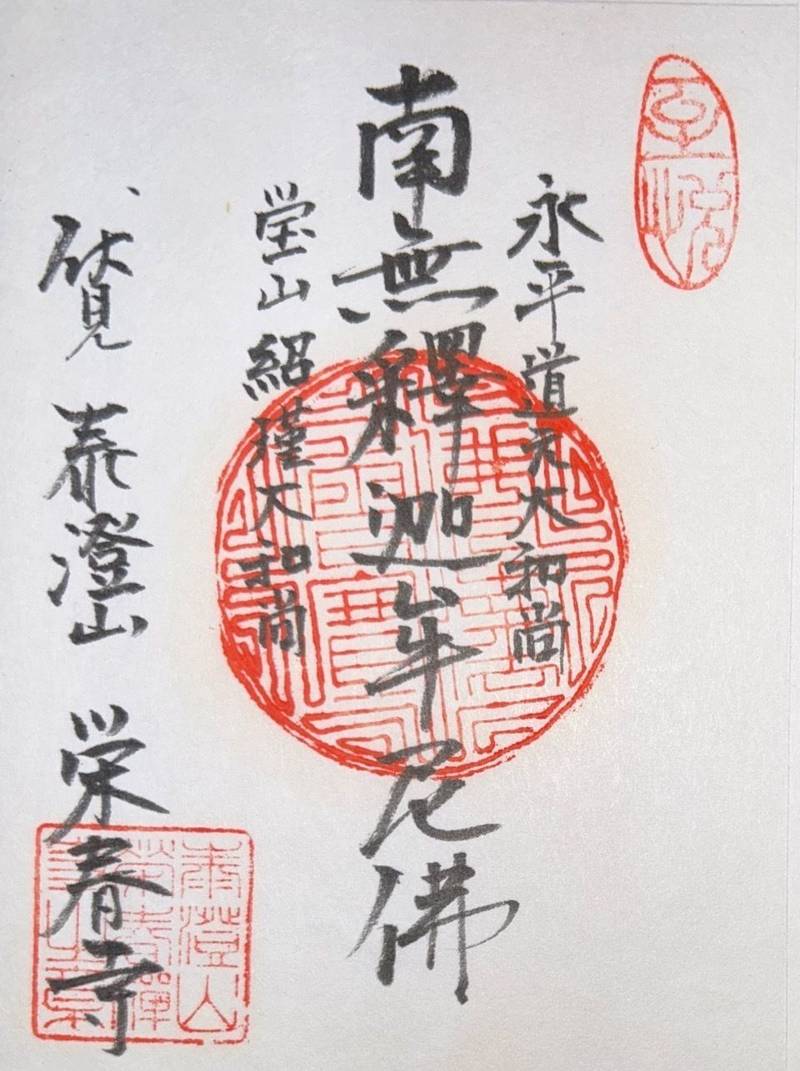 永平道元大和尚
南無釋迦牟尼佛
瑩山紹瑾大和尚
伏見 泰澄山 栄春寺
泰澄山
榮春禪